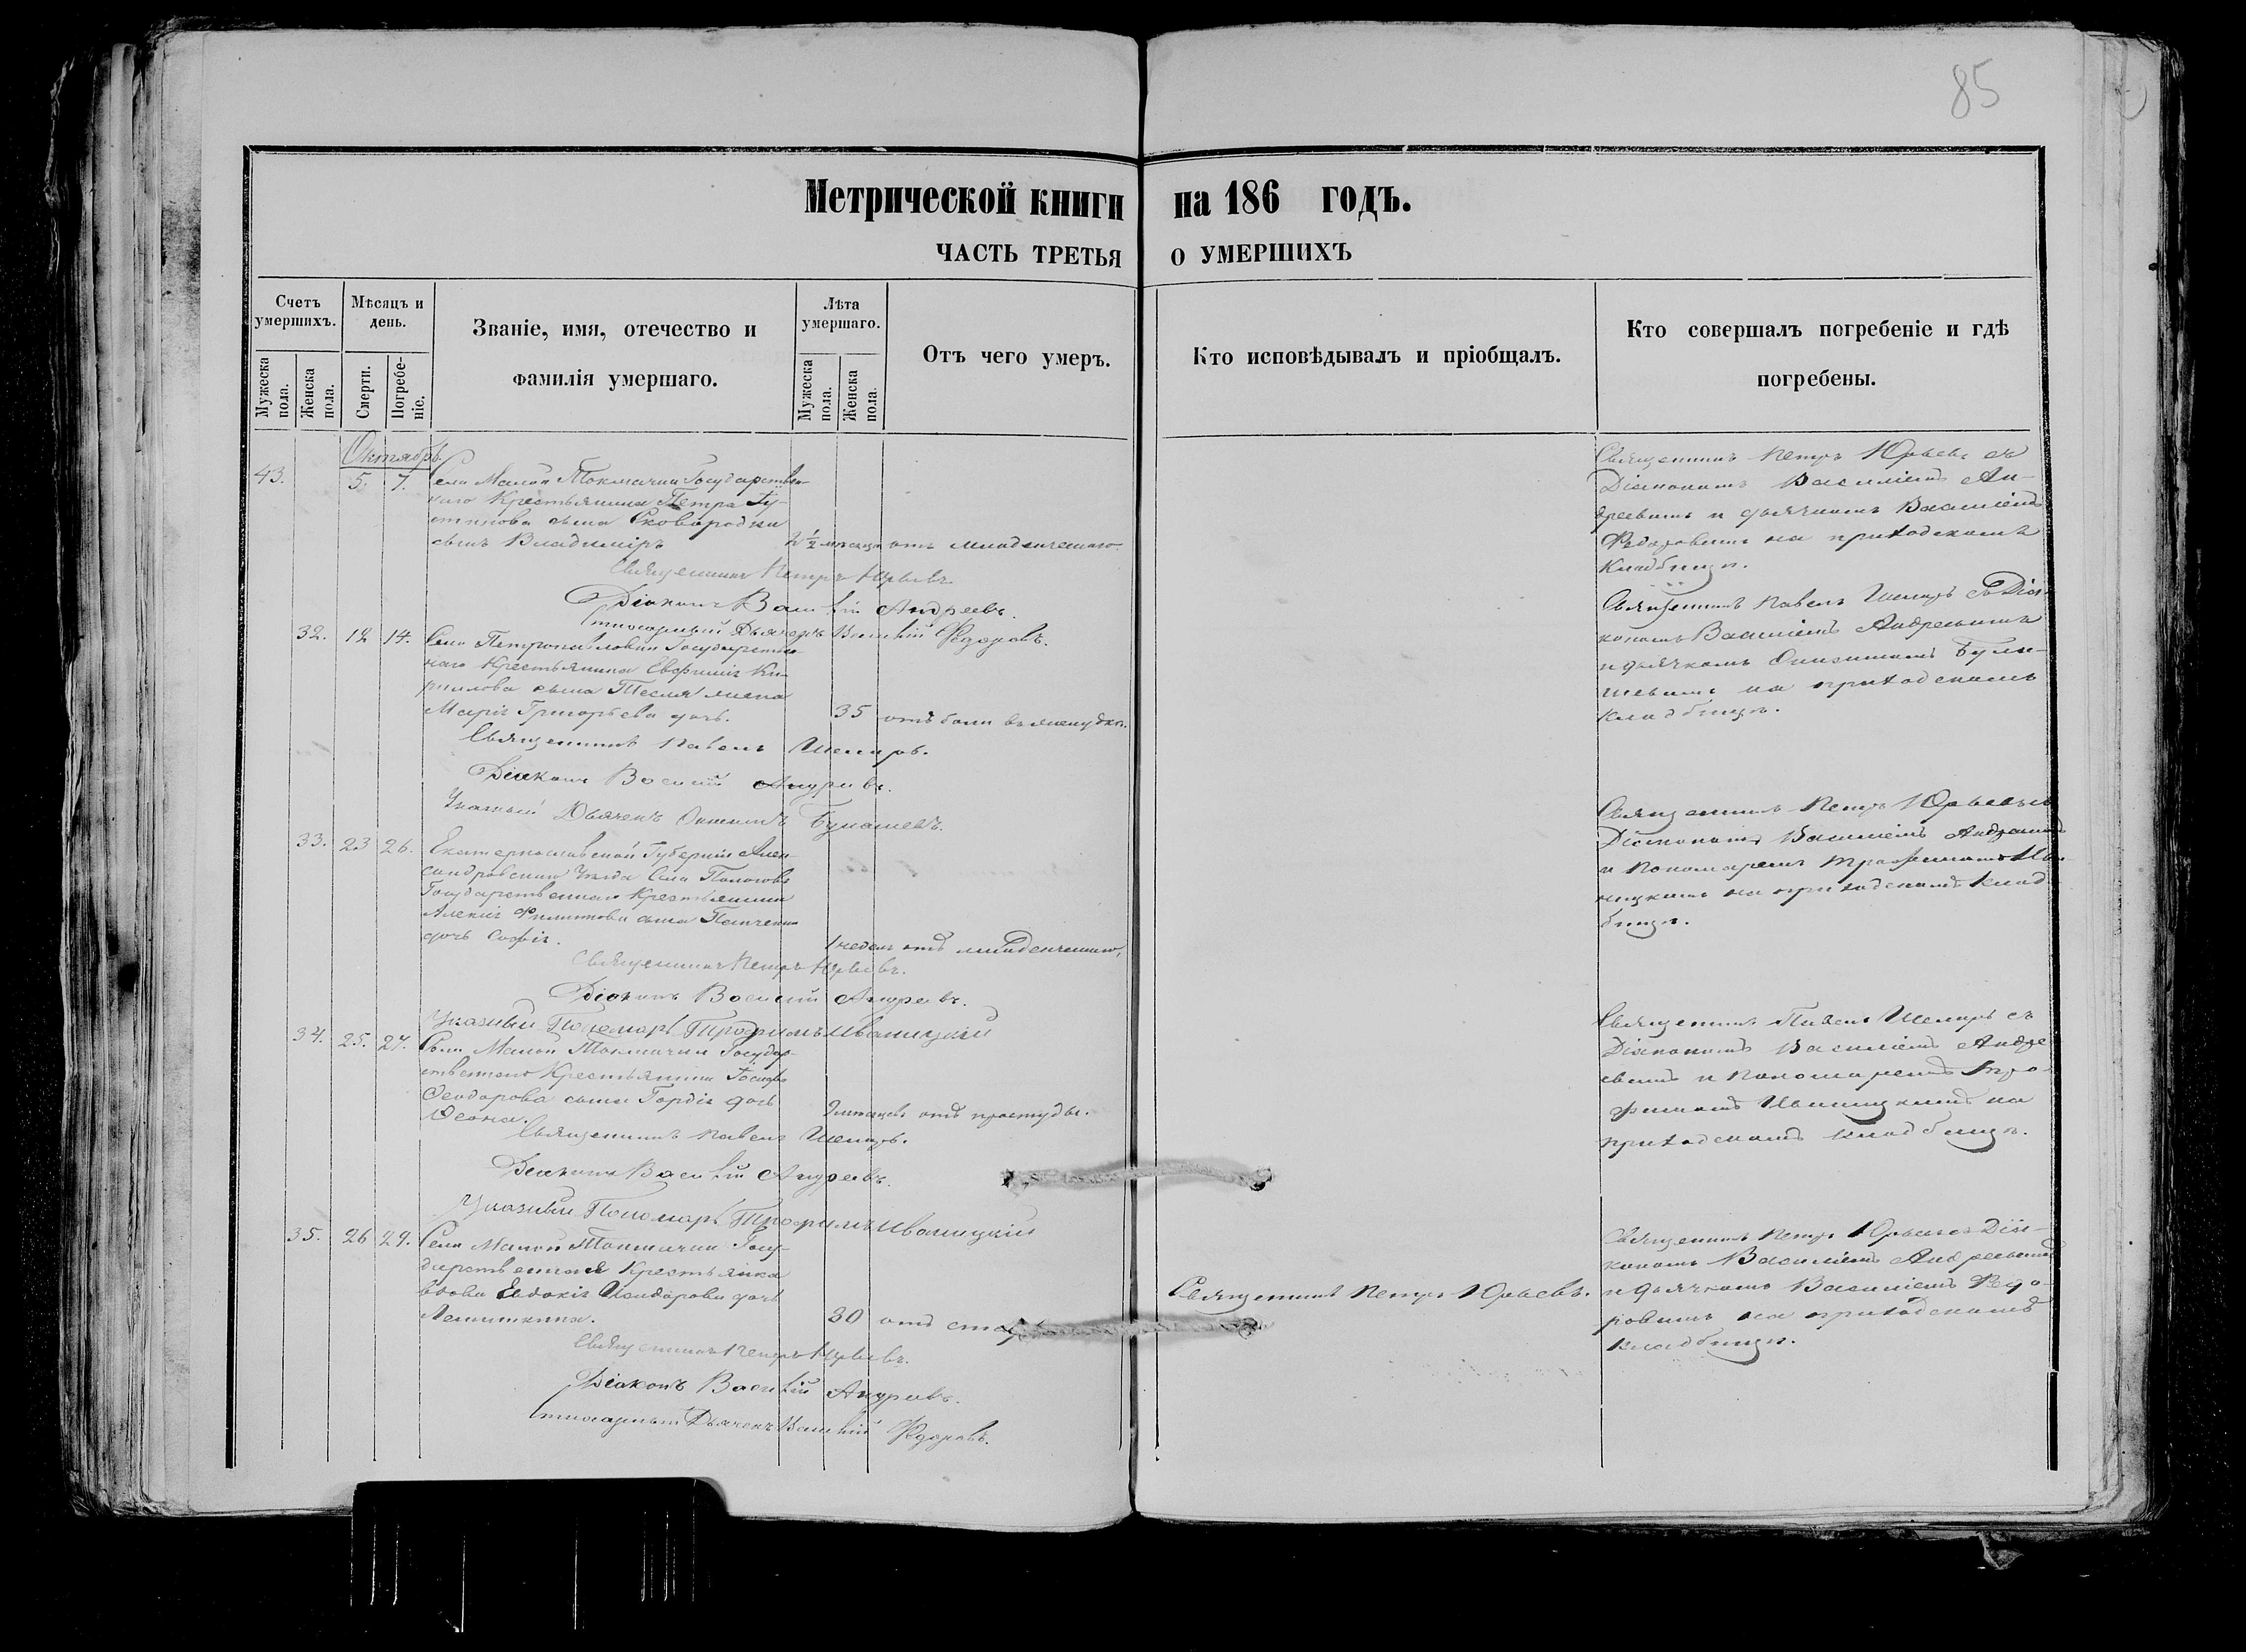 85
Метрической книги на 186 годъ.
ЧАСТЬ ТРЕТЬЯ О УМЕРШИХЪ
Счетъ умершихъ.
Мѣсяцъ и день.
Званіе, имя, отечество и фамилія умершаго.
Лѣта умершаго.
Отъ чего умеръ.
Кто исповѣдывалъ и пріобщалъ.
Кто совершалъ погребеніе и гдѣ погребены.
Мужеска пола.
Женска пола.
Смерти.
Погребеніе.
Мужеска пола.
Женска пола.
Октябрь.
43. 5. 7. Села Малой Токмачки Государствен-
наго Крестьянина Петра
сына Сковородки
сынъ Владиміръ
отъ младенческаго
Священникъ Петръ Юрьевъ
Діаконъ Василій Андреевъ.
Дьячекъ Василій Федоровъ.
Священникъ Петръ Юрьевъ съ
Діакономъ Василіемъ Ан-
дреевымъ и дьячкомъ Василіемъ
Федоровымъ на приходскомъ
кладбищѣ.
32. 12 14. Села Петропавловки Государствен-
наго Крестьянина Евфимія Ки-
рилова сына жена
Марія Григорьева дочь.
35 отъ боли въ желудкѣ.
Священникъ Павелъ
Діаконъ Василій Андреевъ.
Указный Дьячекъ
Священникъ Павелъ съ Діа-
кономъ Василіемъ Андреевымъ
и дьячкомъ
на приходскомъ
кладбищѣ.
33. 23 26. Екатеринославской Губерніи Алек-
сандровскаго Уѣзда Села Пологовъ
Государственнаго Крестьянина
Алексія Филиппова сына Панченка
дочь Софія.
1 недели отъ младенческаго,
Священникъ Петръ Юрьевъ.
Діаконъ Василій Андреевъ.
Указный Пономарь Трофимъ Иваницкій
Священникъ Петръ Юрьевъ съ
Діакономъ Василіемъ Андреевымъ
и Пономаремъ Трофимомъ Ива-
ницкимъ на приходскомъ клад-
бищѣ.
34. 25. 27. Села Малой Токмачки Государ-
ственнаго Крестьянина
Феодорова сына Гордія дочь
отъ простуды.
Священникъ Павелъ
Діаконъ Василій Андреевъ.
Указный Пономарь Трофимъ Иваницкій
Священникъ Павелъ съ
Діакономъ Василіемъ Андре-
евымъ и Пономаремъ Тро-
фимомъ Иваницкимъ на
приходскомъ кладбищѣ.
35. 26 29. Села Малой Токмачки Госу-
дарственная Крестьянка
вдова Евдокія дочь
30 отъ
Священникъ Петръ Юрьевъ.
Діаконъ Василій Андреевъ.
Дьячекъ Василій Федоровъ.
Священникъ Петръ Юрьевъ.
Священникъ Петръ Юрьевъ съ Діа-
кономъ Василіемъ Андреевымъ
и дьячкомъ Василіемъ Федо-
ровымъ на приходскомъ
кладбищѣ.